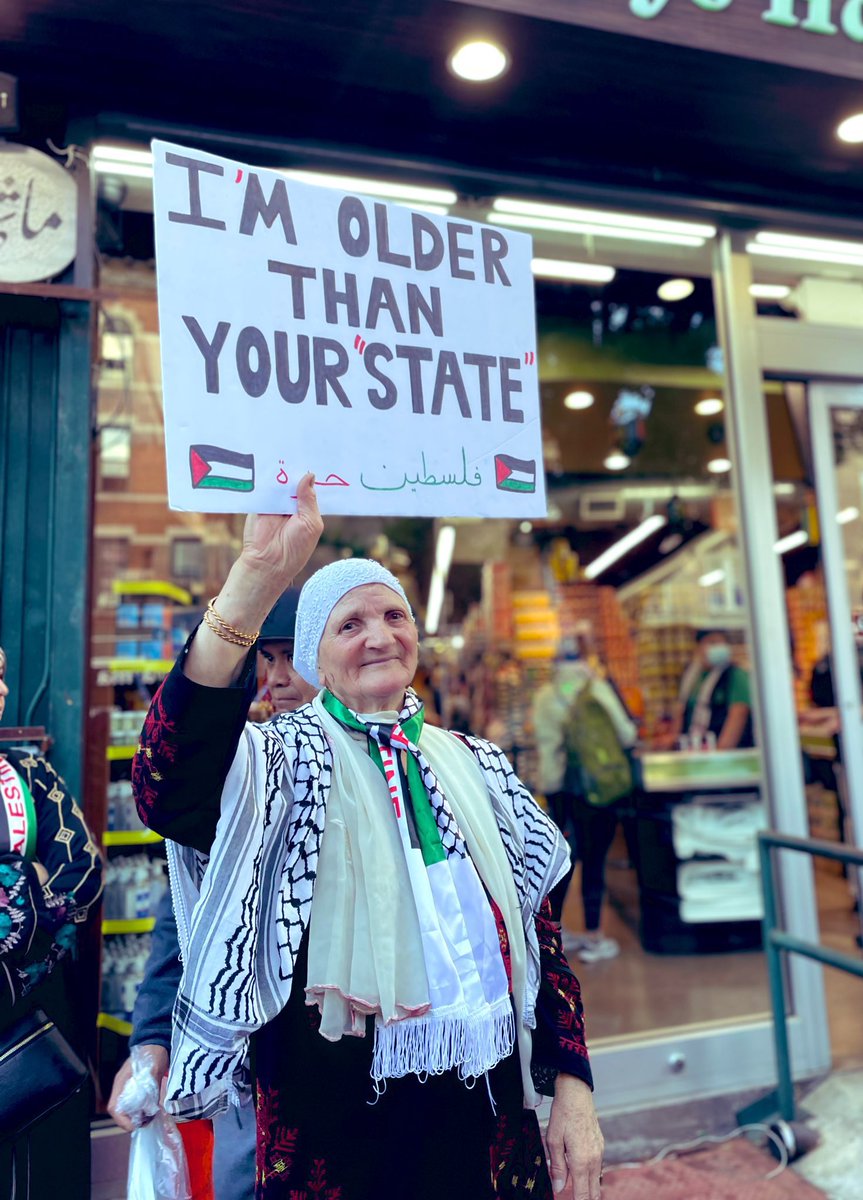 I'M OLDER
THAN
YOUR "STATE"
فلسطين حرة